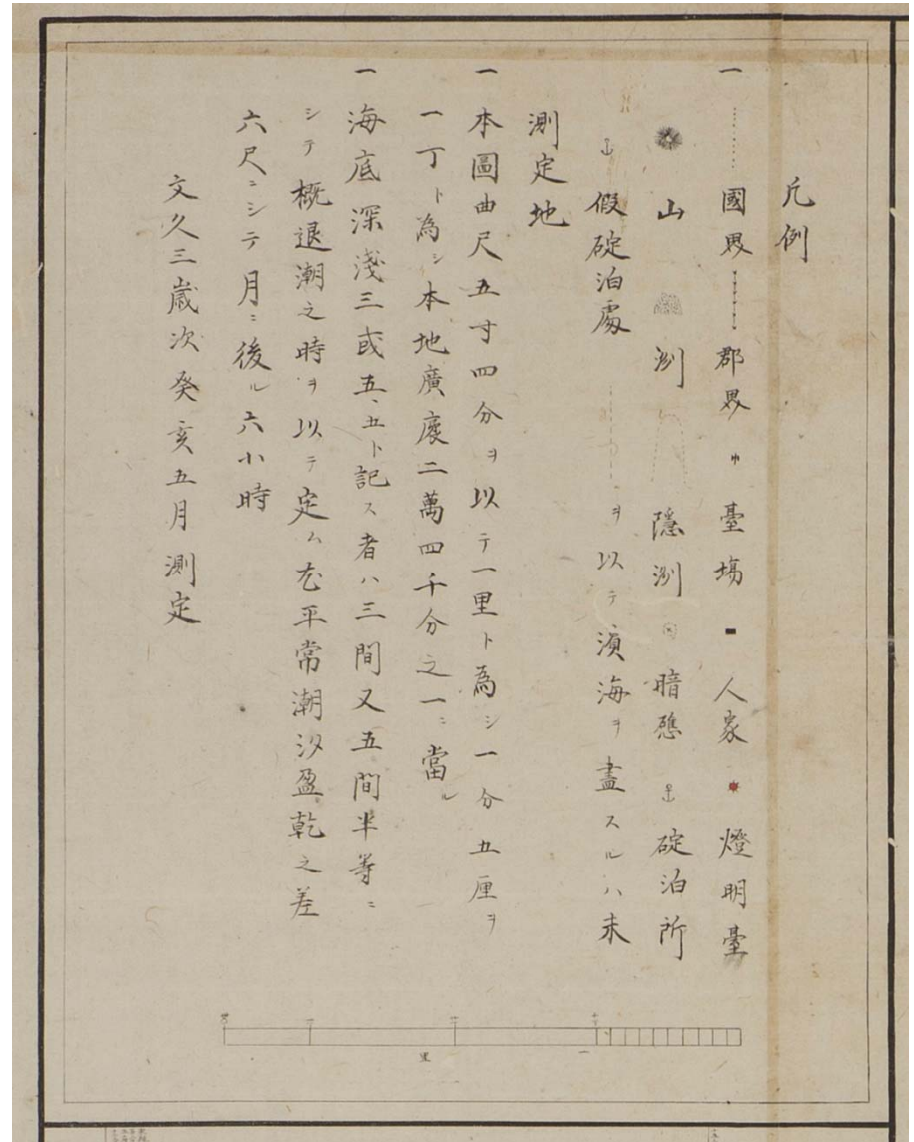 凡例
一 國界 郡界 臺場 人家 燈明臺
山 洲 隠洲 暗礁 碇泊所
假碇泊處 ヲ以テ濱海ヲ畫スルハ未
測定地
一 本圖曲尺五寸四分ヲ以テ一里ト為シ一分五厘ヲ
一丁ト為シ本地廣廣二萬四千分之一ニ當ル
一 海底深淺三或五、五ト記ス者ハ三間又五間半等ニ
シテ概退潮之時ヲ以テ定ム尤平常潮汐盈乾之差
六尺ニシテ月ニ後ル六小時
文久三歳次癸亥五月測定
十丁
一
里